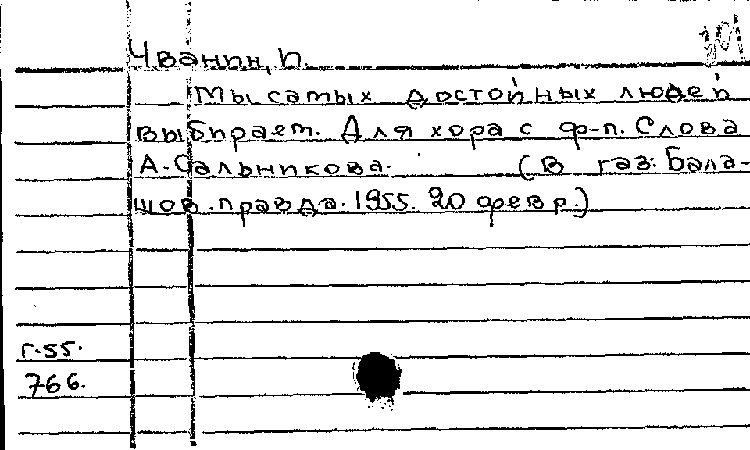 Чванин, П.
Мы самых достойных людей
выбирает. Для хора с ф-п. Слова
А. Сальникова. (В газ: Бала-
шов. правда. 1955. 20 февр.)
г.55.
766.